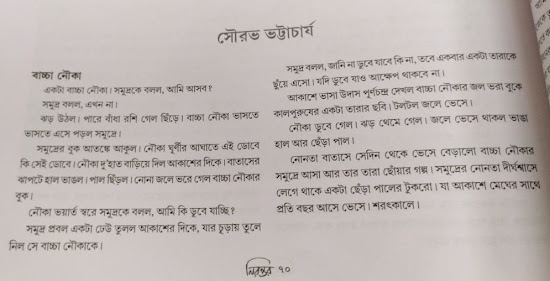 সৌরভ ভট্টাচার্য
বাচ্চা নৌকা
একটা বাচ্চা নৌকা। সমুদ্রকে বলল, আমি আসব?
সমুদ্র বলল, এখন না।
ঝড় উঠল। পারে বাঁধা রশি গেল ছিঁড়ে। বাচ্চা নৌকা ভাসতে
ভাসতে এসে পড়ল সমুদ্রে।
সমুদ্রের বুক আতঙ্কে আকুল। নৌকা ঘূর্ণীর আঘাতে এই ডোবে
কি সেই ডোবে। নৌকা দু'হাত বাড়িয়ে দিল আকাশের দিকে। বাতাসের
ঝাপটে হাল ভাঙল। পাল ছিঁড়ল। নোনা জলে ভরে গেল বাচ্চা নৌকার
বুক।
নৌকা ভয়ার্ত স্বরে সমুদ্রকে বলল, আমি কি ডুবে যাচ্ছি?
সমুদ্র প্রবল একটা ঢেউ তুলল আকাশের দিকে, যার চূড়ায় তুলে
নিল সে বাচ্চা নৌকাকে।
সমুদ্র বলল, জানি না ডুবে যাবে কি না, তবে একবার একটা তারাকে
ছুঁয়ে এসো। যদি ডুবে যাও আক্ষেপ থাকবে না।
আকাশে ভাসা উদাস পূর্ণচন্দ্র দেখল বাচ্চা নৌকার জল ভরা বুকে
কালপুরুষের একটা তারার ছবি। টলটল জলে ভেসে।
নৌকা ডুবে গেল। ঝড় থেমে গেল। জলে ভেসে থাকল ভাঙা
হাল আর ছেঁড়া পাল।
নোনতা বাতাসে সেদিন থেকে ভেসে বেড়ালো বাচ্চা নৌকার
সমুদ্রে আসা আর তার তারা ছোঁয়ার গল্প। সমুদ্রের নোনতা দীর্ঘশ্বাসে
লেগে থাকে একটা ছেঁড়া পালের টুকরো। যা আকাশে মেঘের সাথে
প্রতি বছর আসে ভেসে। শরৎকালে।
৭০